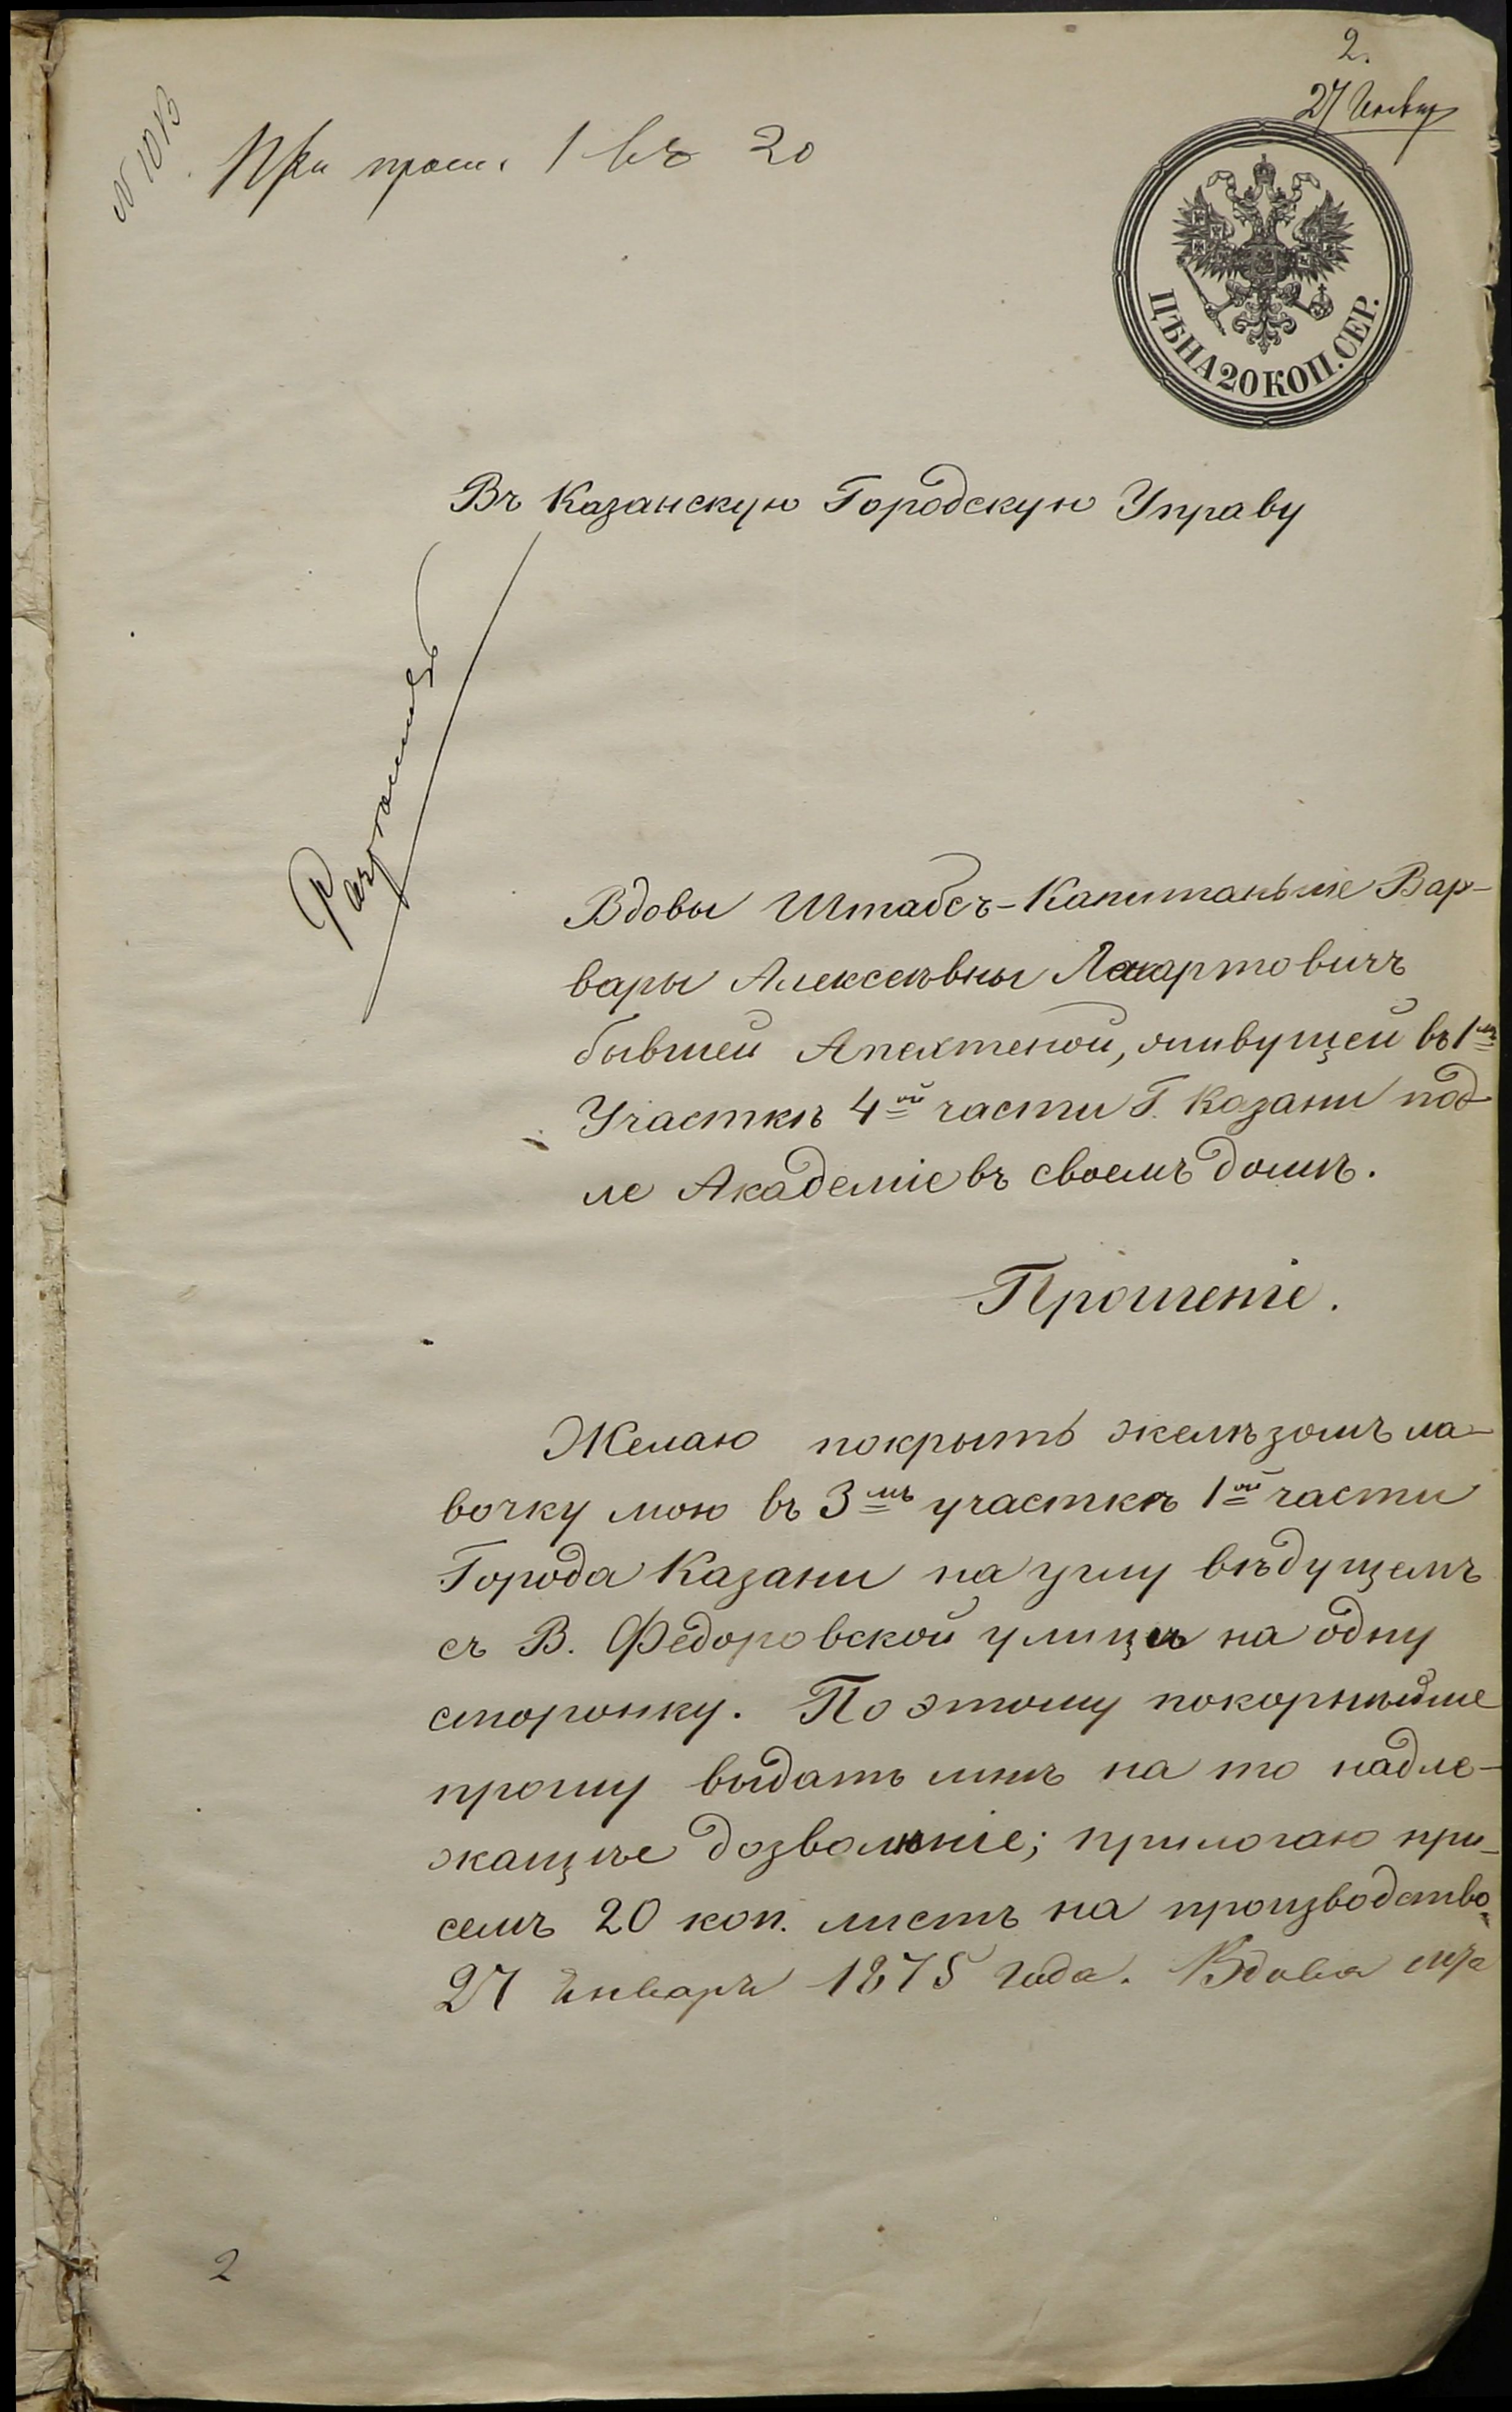 2.
27 Январ
№ 1013
При прош. 1 въ 20
ЦѢНА 20 КОП. СЕР.
Въ Казанскую Городскую Управу
Вдовы Штабсъ-Капитаньше Вар-
вары Алексеѣвны
бывшей Апехтеной, живущей въ 1мъ
Участкѣ 4ой части Г. Казани под-
ле Академіе въ своемъ домѣ.
Прошеніе.
Желаю покрыть желѣзомъ ла-
вочку мою въ 3мъ участкѣ 1ой части
Города Казани на углу вѣдущемъ
съ В. Федоровской улицы на одну
сторонку. По этому покорнѣйше
прошу выдать мнѣ на то надле-
жащѣе дозволѣніе; прилогаю при
семъ 20 коп. листъ на производство.
27 Январѣ 1875 года. Вдова
2